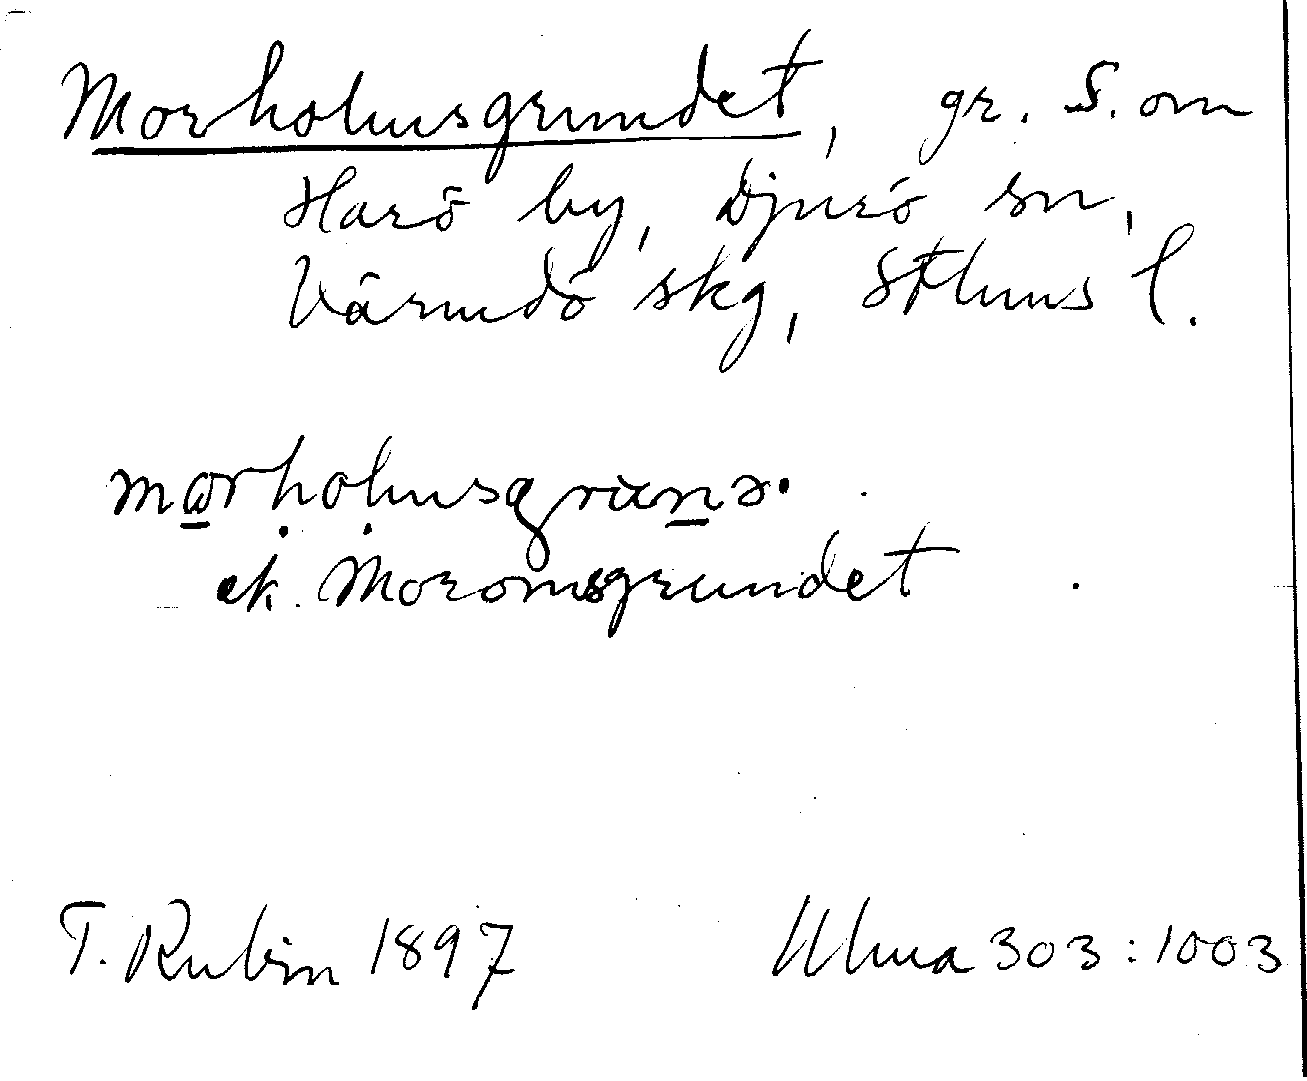 Morholmsgrundet, gr. S. om
Harö by, Djurö sn,
Värmdö skg, Sthlms l.
ek. Moromsgrundet
T. Rubin 1897 Ulma 303:1003